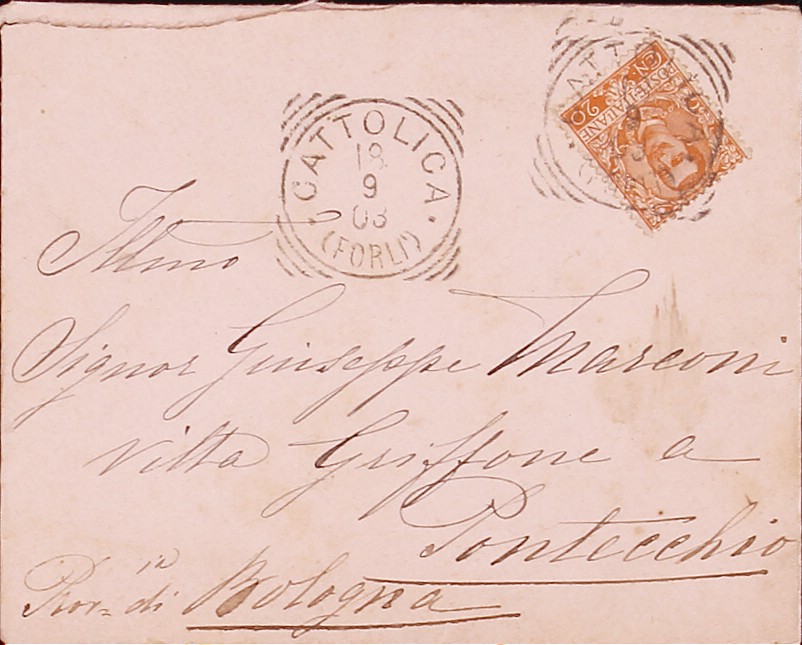 CATTOLICA
18
9
03
(FORLI')
ATT
POSTE ITALIANE
CEN 20
Illmo
Signor Giuseppe Marconi
villa Griffone a
Pontecchio
in
Prov= di Bologna